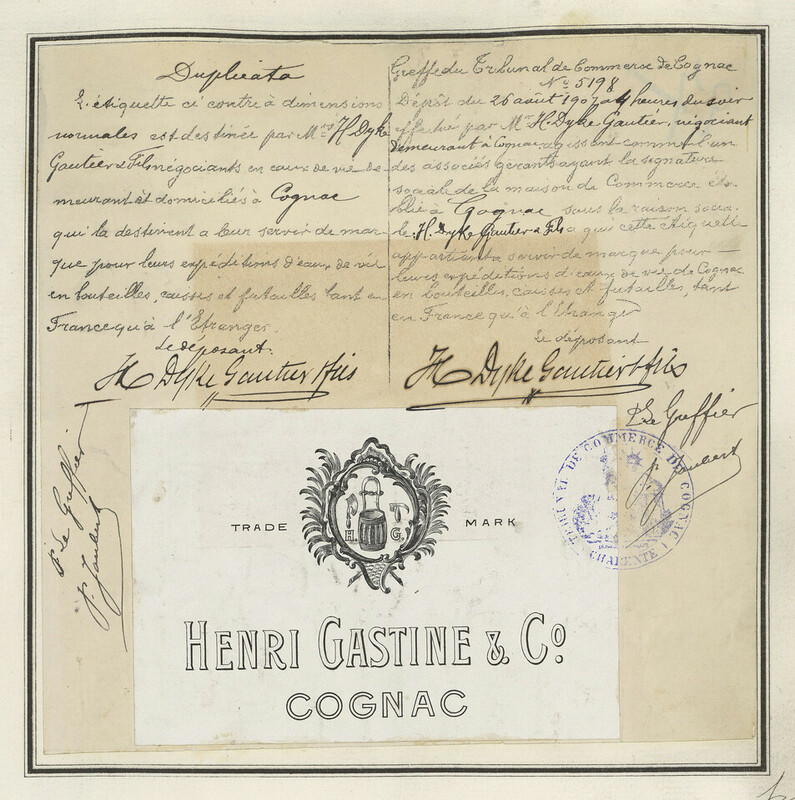 Duplicata
L'étiquette ci contre à dimensions
normales est destinée par Mrs H Dyke
Gautier & Fils négociants en eaux de vie de-
meurant et domiciliés à Cognac
qui la destinent a leur servir de mar-
que pour leurs expéditions d'eaux de vie
en bouteilles, caisses et futailles tant en
France qu'à l'Etranger.
Le déposant.
H Dyke Gautier & fils
Greffe du Tribunal de Commerce de Cognac
No 5198
Dépôt du 26 août 1907 à 4 heures du soir
effectué par Mr H. Dyke Gautier, négociant
demeurant à Cognac agissant comme l'un
des associés gérants ayant la signature
sociale de la maison de Commerce éta-
blie à Cognac sous la raison socia-
le H. Dyke Gautier & Fils a qui cette étiquette
appartient & servir de marque pour
leurs expéditions d'eaux de vie de Cognac
en bouteilles, caisses et futailles, tant
en France qu'à l'Etranger
Le déposant
H Dyke Gautier & fils
P. Le Greffier
p. Joubert
P. Le Greffier
p. Joubert
TRIBUNAL DE COMMERCE DE COGNAC
CHARENTE
TRADE MARK
H. G.
HENRI GASTINE & Co.
COGNAC